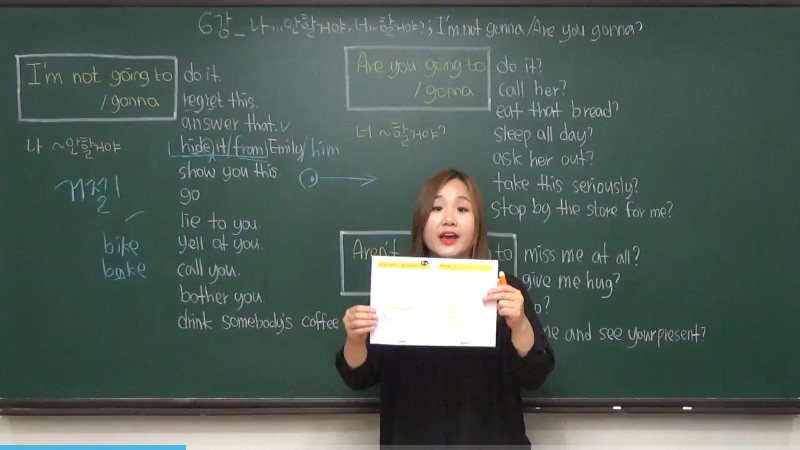 6강_나...안할거야, 너...할거야?; I'm not gonna/Are you gonna?
I'm not going to
/gonna
나 ~안할거야
do it.
regret this.
answer that.
hide it/from/Emily/him
show you this
go
lie to you.
yell at you.
call you.
bother you
drink somebody's coffee
2
bike
bake
Are you going to
/gonna
너 ~할거야?
do it?
call her?
eat that bread?
sleep all day?
ask her out?
take this seriously?
stop by the store for me?
Aren't to
miss me at all?
give me hug?
and see your present?